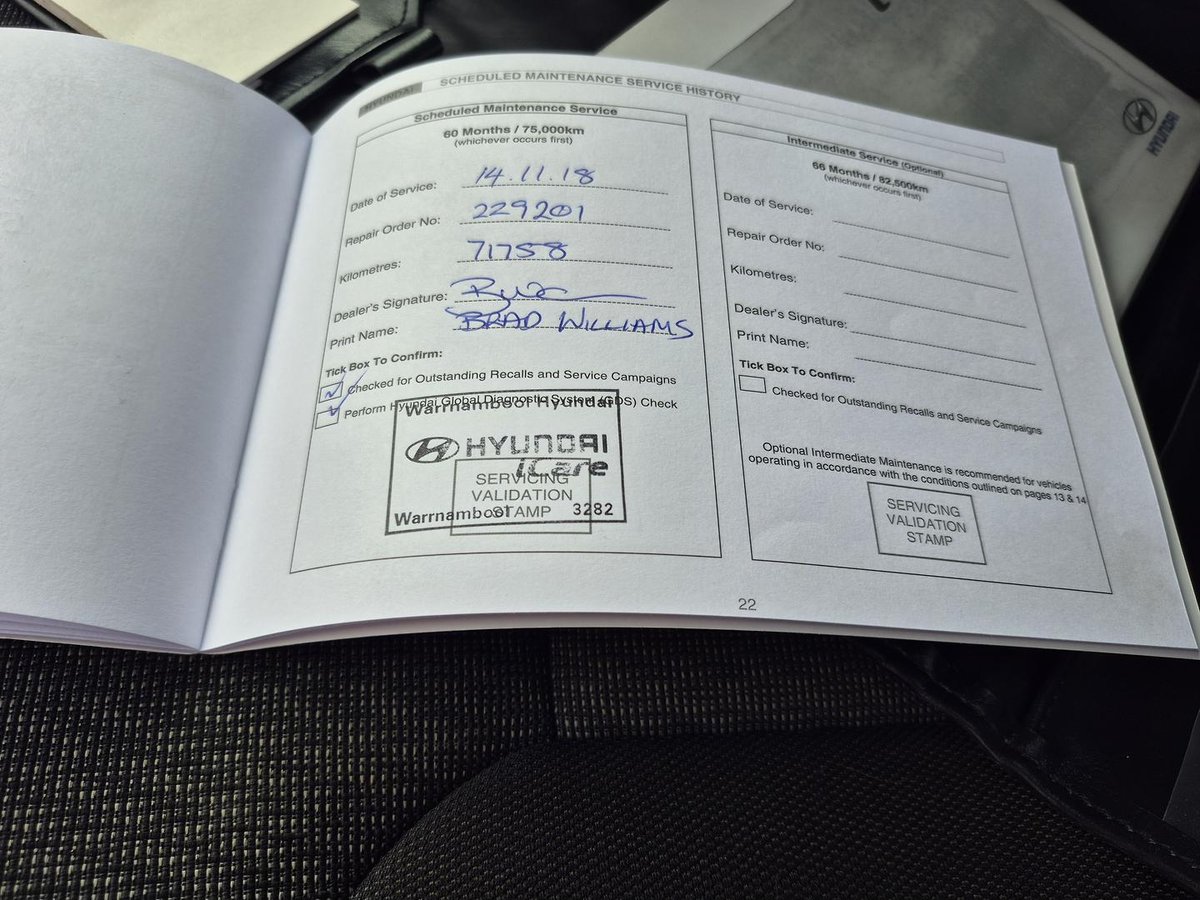 HYUNDAI
SCHEDULED MAINTENANCE SERVICE HISTORY
Scheduled Maintenance Service
60 Months / 75,000km
(whichever occurs first)
Date of Service: 14.11.18
Repair Order No: 229201
Kilometres: 71758
Dealer's Signature:
Print Name: BRAD WILLIAMS
Tick Box To Confirm:
Checked for Outstanding Recalls and Service Campaigns
Perform Hyundai Global Diagnostic System (GDS) Check
Warrnambool Hyundai
HYUNDAI
iCare
SERVICING
VALIDATION
STAMP
Warrnambool 3282
Intermediate Service (Optional)
66 Months / 82,500km
(whichever occurs first)
Date of Service:
Repair Order No:
Kilometres:
Dealer's Signature:
Print Name:
Tick Box To Confirm:
Checked for Outstanding Recalls and Service Campaigns
Optional Intermediate Maintenance is recommended for vehicles
operating in accordance with the conditions outlined on pages 13 & 14
SERVICING
VALIDATION
STAMP
22
HYUNDAI